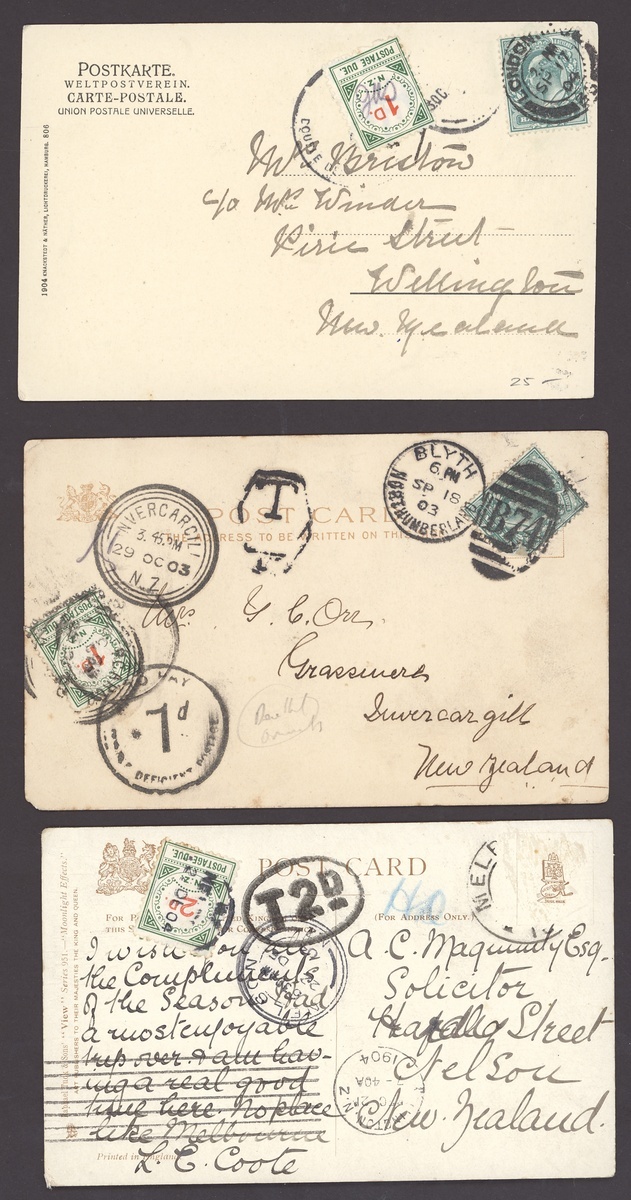 POSTKARTE.
WELTPOSTVEREIN.
CARTE-POSTALE.
UNION POSTALE UNIVERSELLE.
1904 KNACKSTEDT & NÄTHER, LICHTDRUCKEREI, HAMBURG. 806
POSTAGE DUE.
N.Z.
1D
LONDON
Mr Bristow
c/o Mrs Winder
Pirie Street
Wellington
New Zealand
25 -
POST CARD
THE ADDRESS TO BE WRITTEN ON THIS
INVERCARGILL
3.45PM
29 OC 03
N.Z.
T
BLYTH
6.PM
SP 18
03
NORTHUMBERLAND
B74
POSTAGE DUE.
1D
1d
DEFICIENT POSTAGE
Mrs. G. C. Orr
Grassmere
Invercargill
New Zealand
POST CARD
(FOR ADDRESS ONLY.)
POSTAGE DUE.
N.Z.
2D
DE 04
T 2D
MELB
"View" Series 951.—"Moonlight Effects."
PUBLISHERS TO THEIR MAJESTIES THE KING AND QUEEN.
I wish you all
the Compliments
of the Season Had
a most enjoyable
trip over. I am hav-
ing a real good
time here. No place
like Melbourne
L. E. Coote
Printed in England
A. C. Maginnity Esq.
Solicitor
Hardy Street
Nelson
New Zealand.
1904
N.Z.